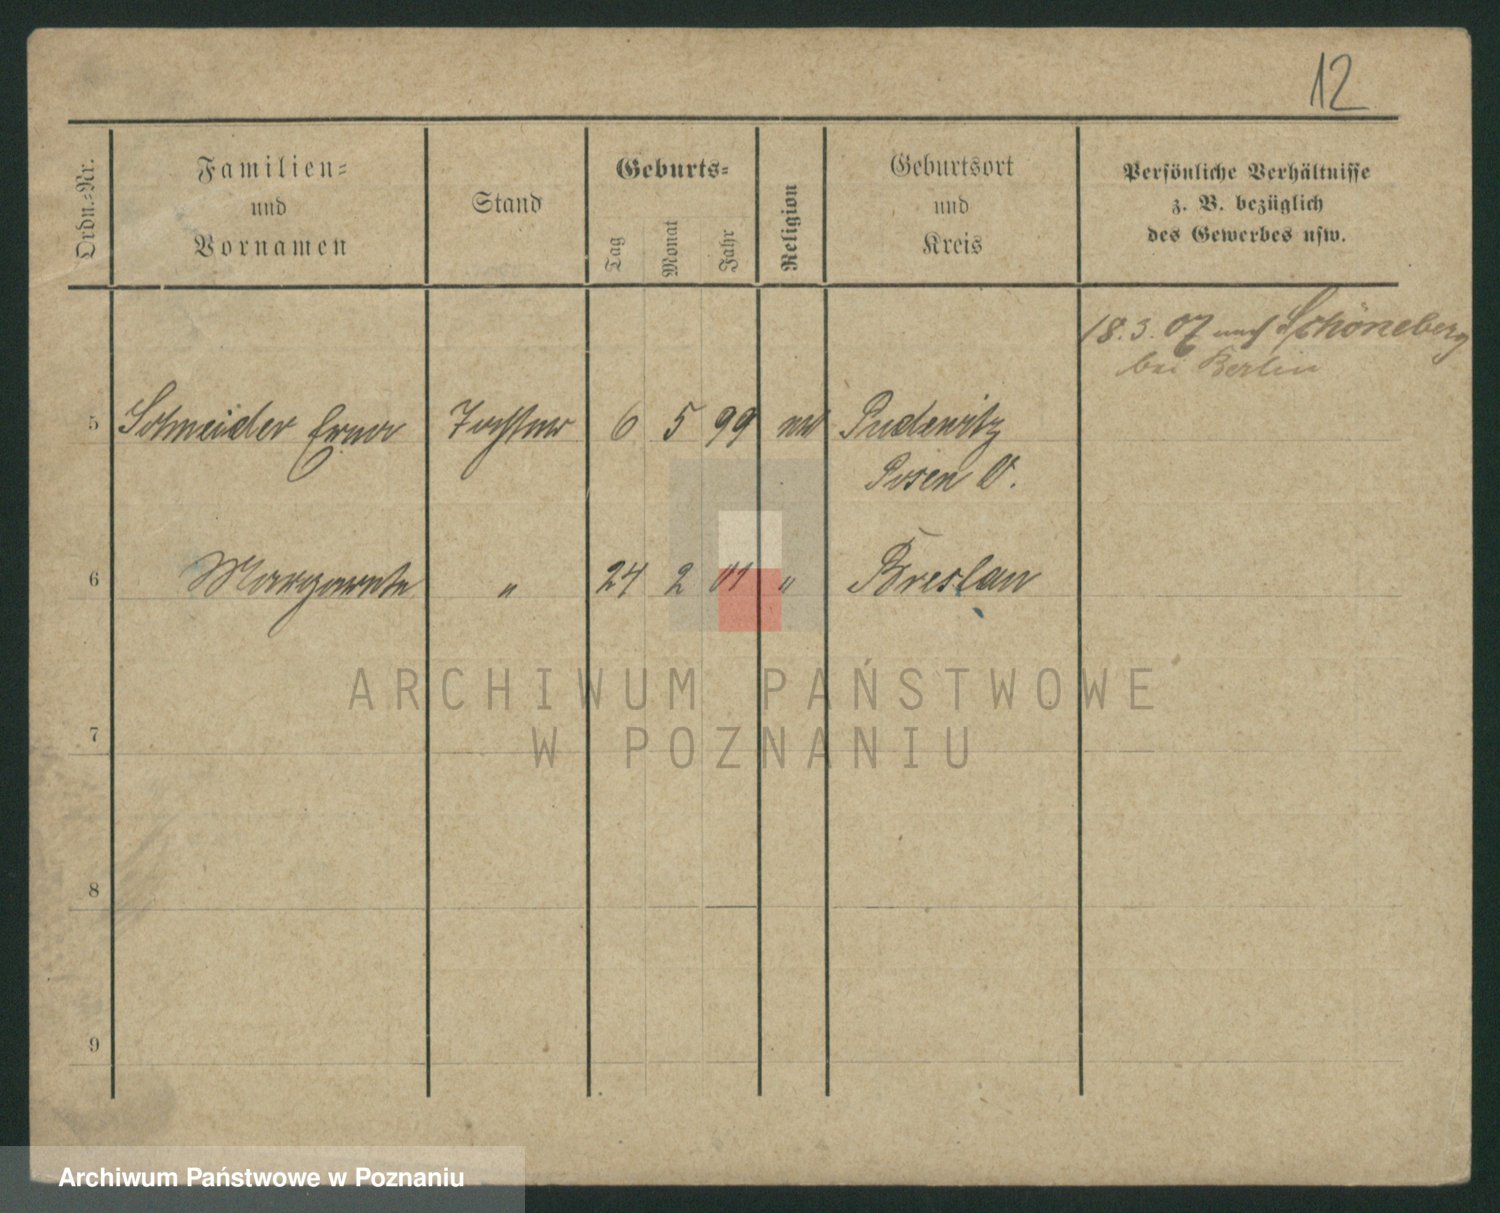 12
Ordn.-Nr.
Familien-
und
Vornamen
Stand
Geburts-
Tag
Monat
Jahr
Religion
Geburtsort
und
Kreis
Persönliche Verhältnisse
z. B. bezüglich
des Gewerbes usw.
18.3.07 nach Schöneberg
bei Berlin
5 Schneider Erna Tochter 6 5 99 Pudewitz
Posen O.
6 Margarete " 24 2 01 " Breslau
7
8
9
ARCHIWUM PAŃSTWOWE
W POZNANIU
Archiwum Państwowe w Poznaniu